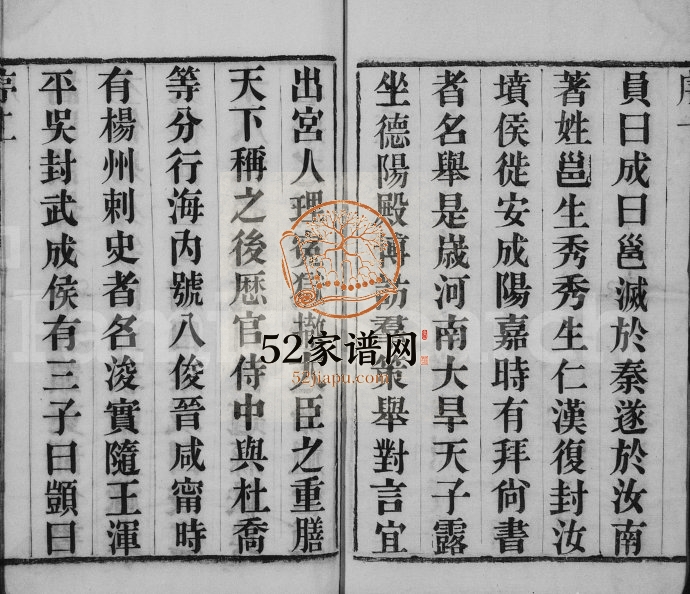 員曰成曰邕滅於秦遂於汝南
著姓邕生秀秀生仁漢復封汝
墳侯徙安成陽嘉時有拜尙書
者名舉是嵗河南大旱天子露
坐德陽殿博訪羣策舉對言宜
出宮人理臣之重膳
天下稱之後歷官侍中與杜喬
等分行海內號八俊晉咸甯時
有楊州刺史者名浚實隨王渾
平吳封武成侯有三子曰顗曰
52家谱网
52jiapu.com